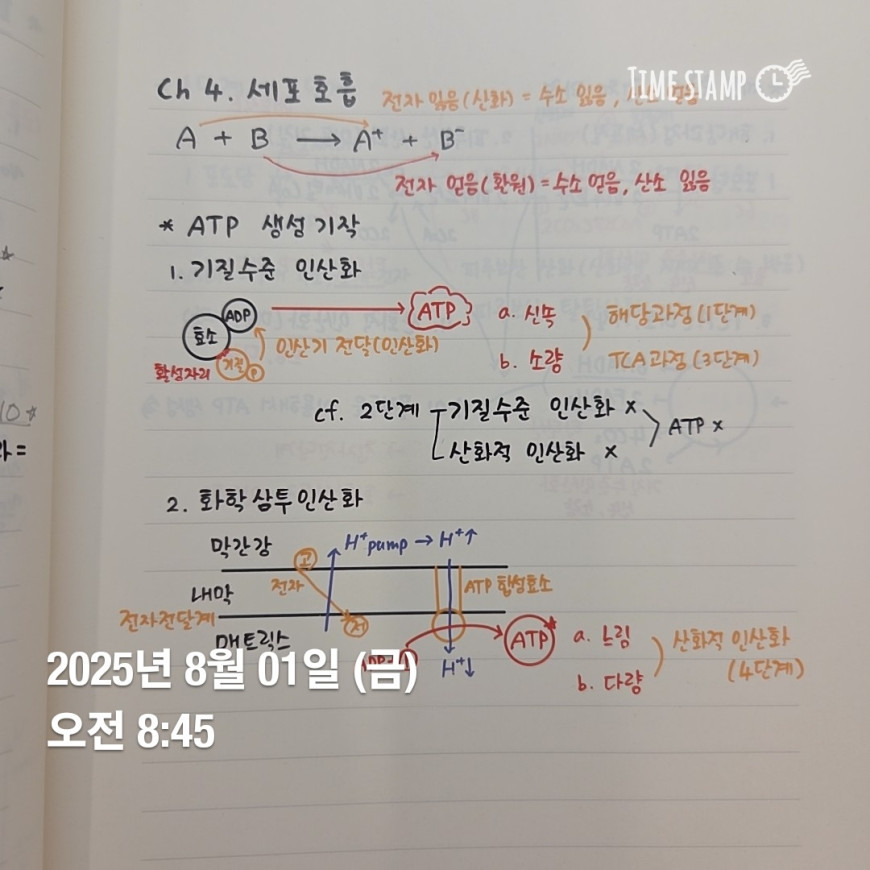 TIME STAMP
Ch 4. 세포호흡
전자 잃음(산화) = 수소 잃음, 산소 얻음
A + B → A⁺ + B⁻
전자 얻음(환원) = 수소 얻음, 산소 잃음
* ATP 생성 기작
1. 기질수준 인산화
효소 ADP → ATP
a. 신속
해당과정(1단계)
기질 P
인산기 전달(인산화)
b. 소량
TCA과정(3단계)
활성자리
cf. 2단계 기질수준 인산화 ×
산화적 인산화 ×
ATP ×
2. 화학삼투인산화
막간강
고
H⁺pump → H⁺↑
내막
전자
ATP 합성효소
전자전달계
저
매트릭스
H⁺↓
ATP
a. 느림
b. 다량
산화적 인산화
(4단계)
2025년 8월 01일 (금)
오전 8:45